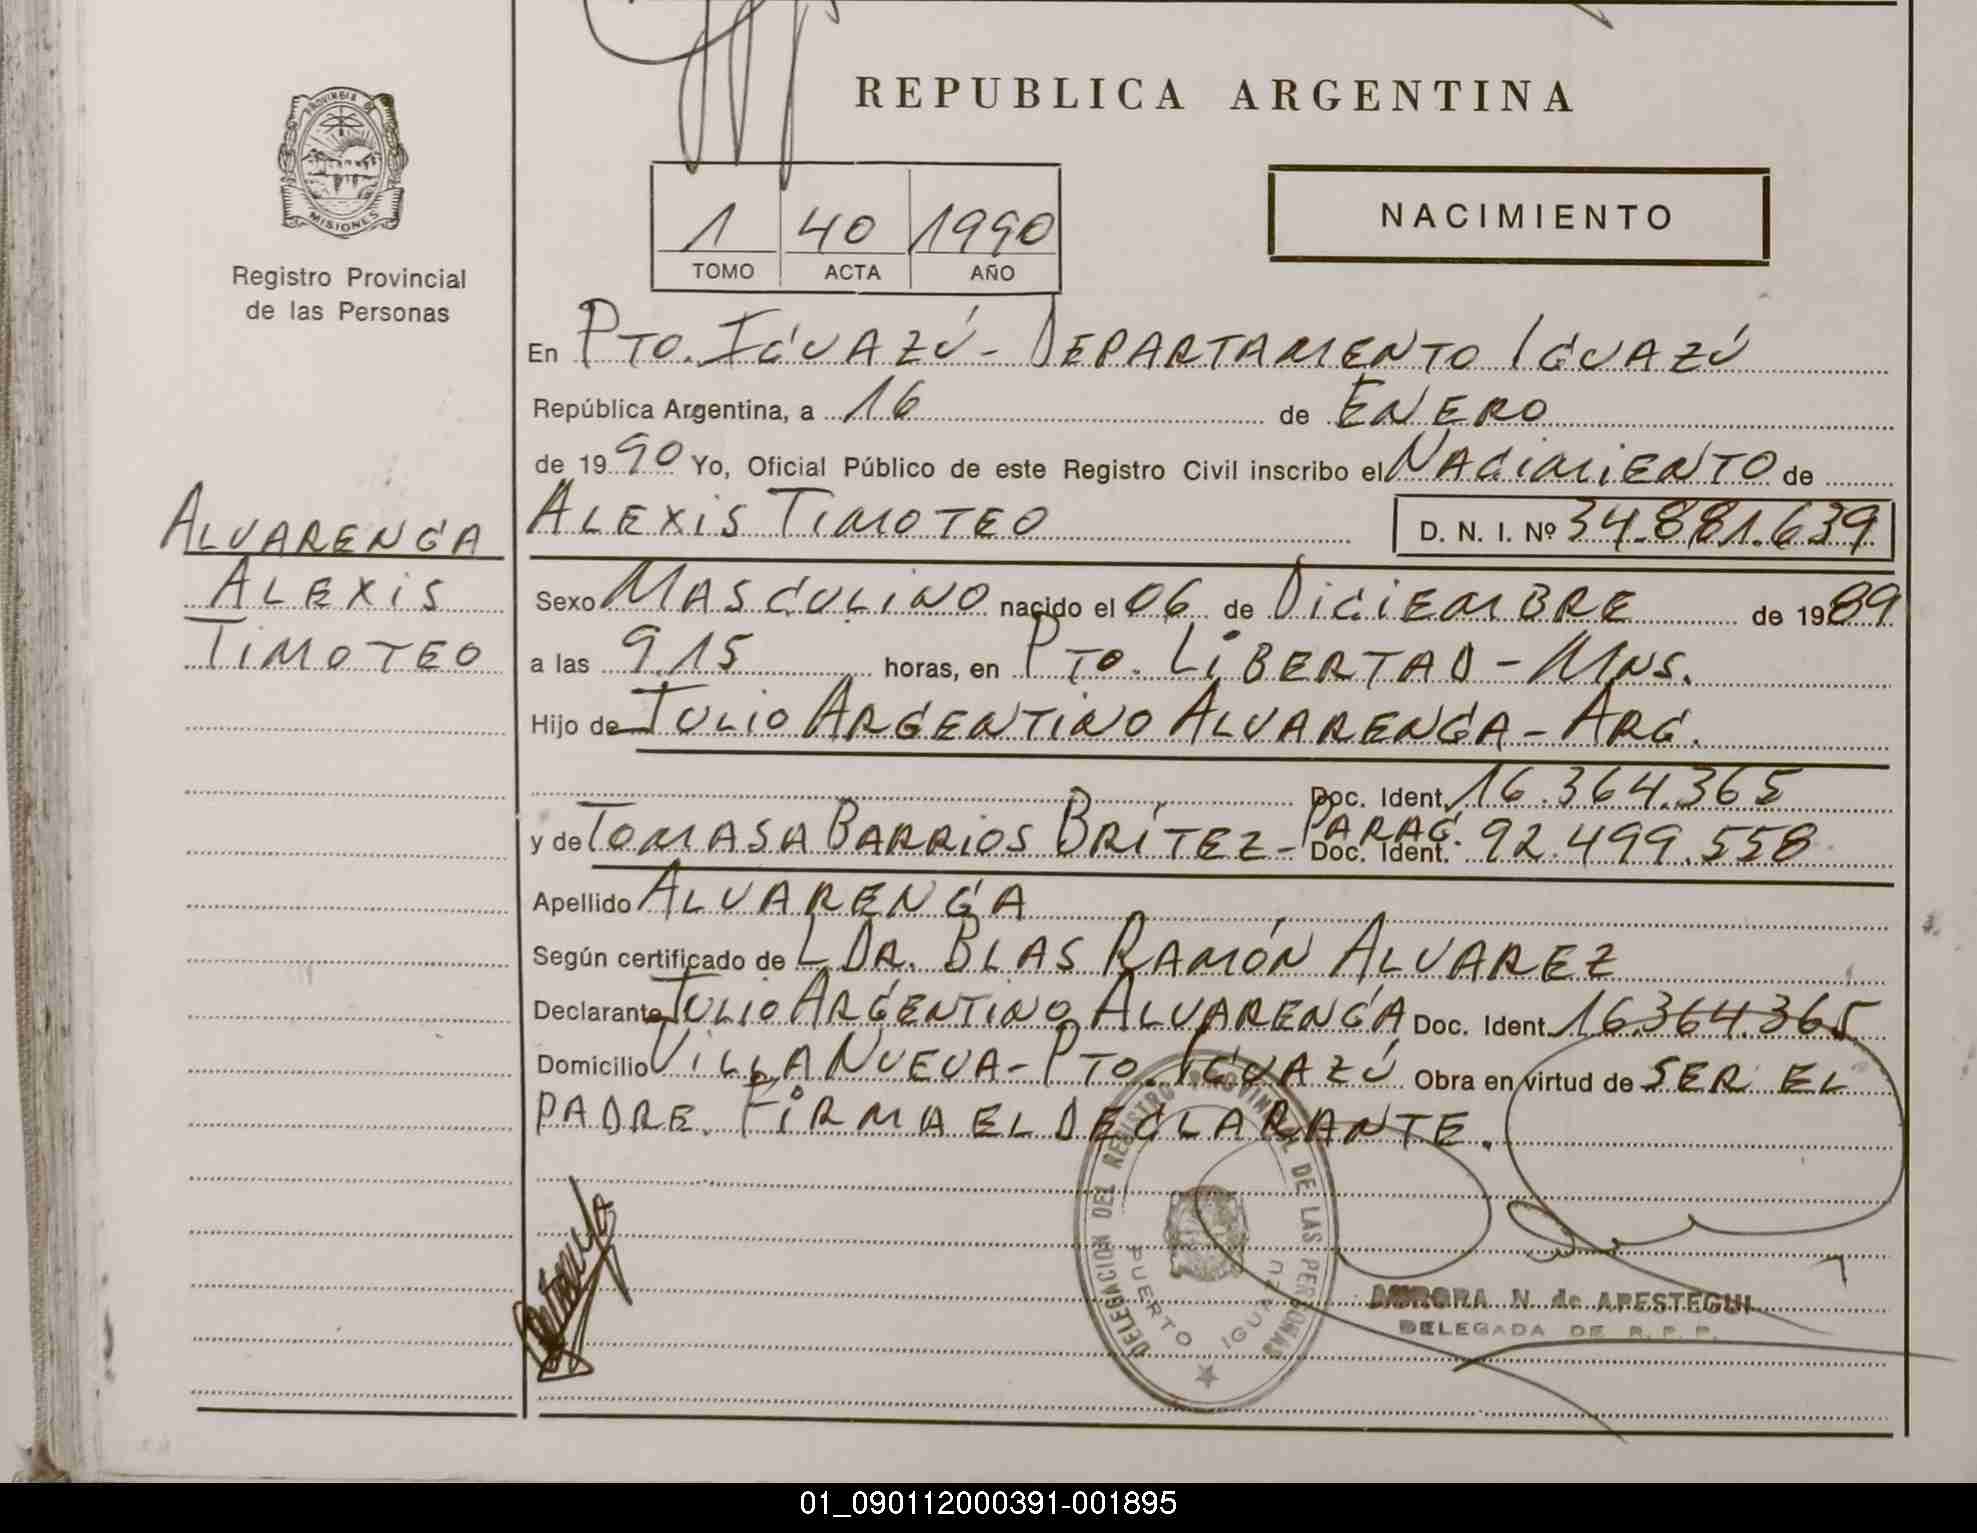 REPUBLICA ARGENTINA
PROVINCIA DE
MISIONES
Registro Provincial
de las Personas
1 40 1990
TOMO ACTA AÑO
NACIMIENTO
En PTO. IGUAZÚ - DEPARTAMENTO IGUAZÚ
República Argentina, a 16 de ENERO
de 1990 Yo, Oficial Público de este Registro Civil inscribo el NACIMIENTO de
ALVARENGA
ALEXIS
TIMOTEO
ALEXIS TIMOTEO D. N. I. Nº 34.881.639
Sexo MASCULINO nacido el 06 de DICIEMBRE de 1989
a las 9.15 horas, en PTO. LIBERTAD - MNS.
Hijo de JULIO ARGENTINO ALVARENGA - ARG.
Doc. Ident. 16.364.365
y de TOMASA BARRIOS BRÍTEZ - PARAG. Doc. Ident. 92.499.558
Apellido ALVARENGA
Según certificado de L DR. BLAS RAMÓN ALVAREZ
Declarante JULIO ARGENTINO ALVARENGA Doc. Ident. 16.364.365
Domicilio VILLA NUEVA - PTO. IGUAZÚ Obra en virtud de SER EL
PADRE. FIRMA EL DECLARANTE.
DELEGACION DEL REGISTRO PROVINCIAL DE LAS PERSONAS
PUERTO IGUAZU
AURORA N. de APESTEGUI
DELEGADA DE R. P. P.
01_090112000391-001895